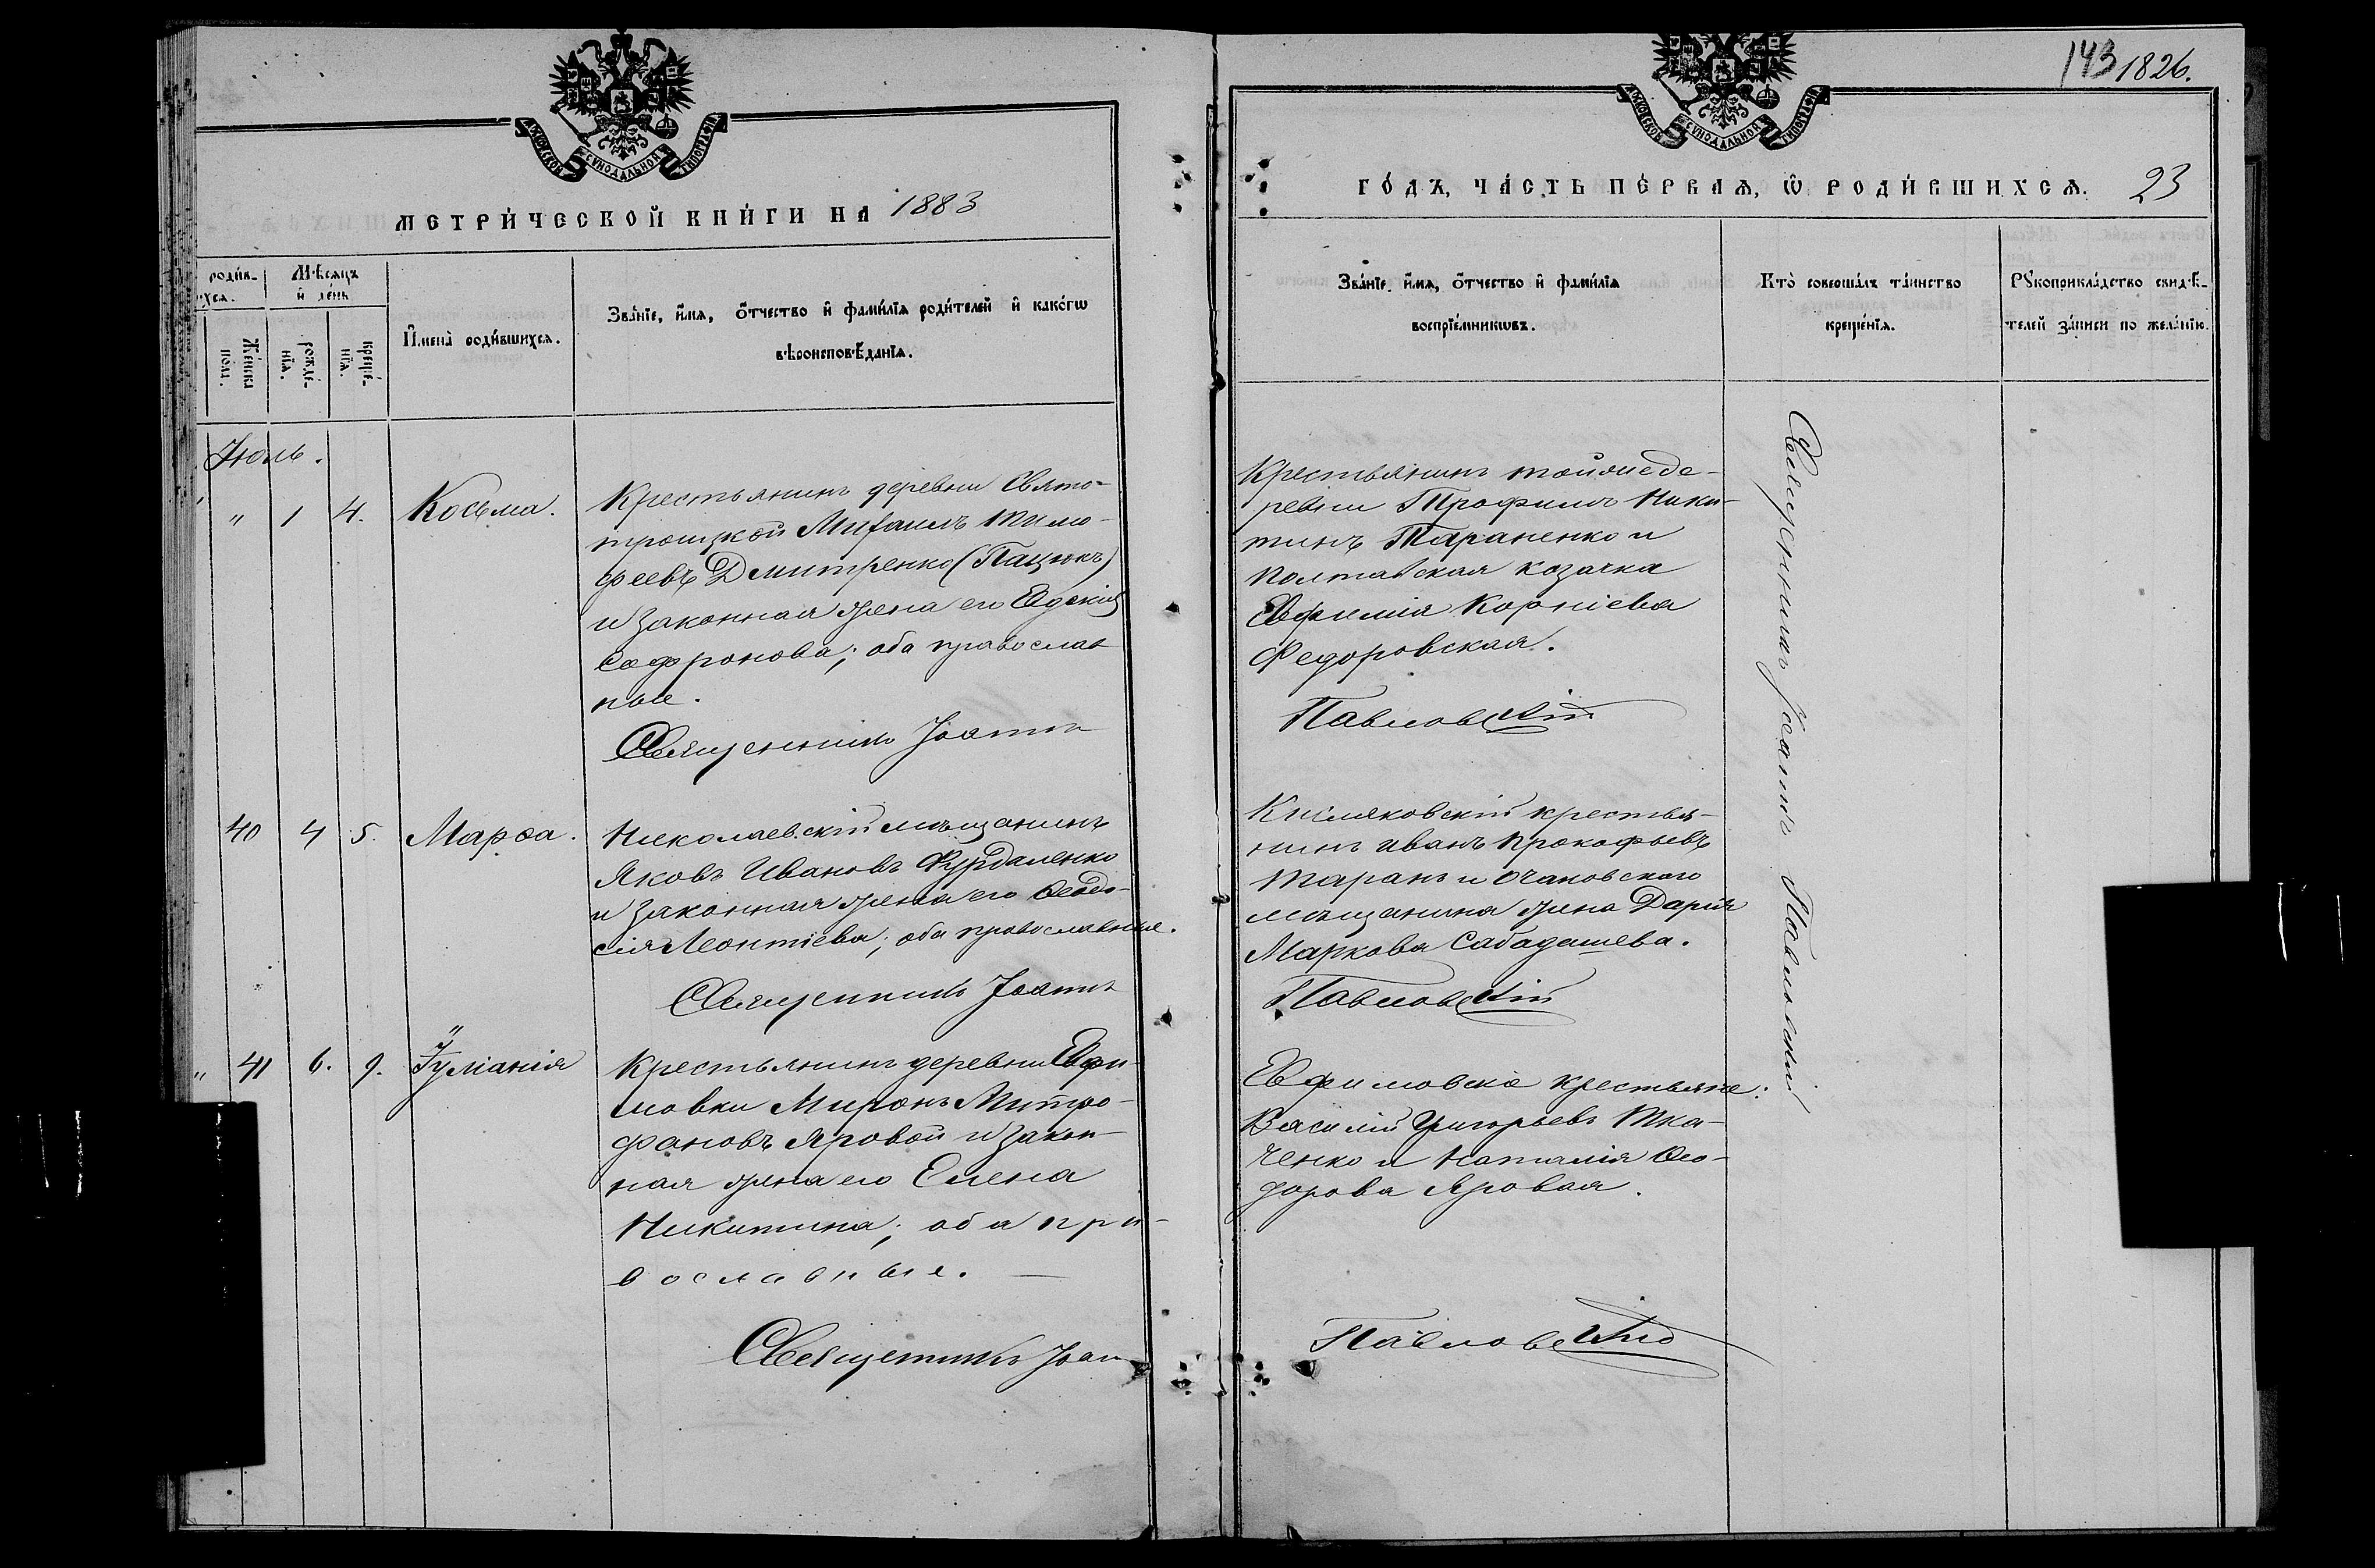 143 1826.
МОСКОВСКОЙ СѴНОДАЛЬНОЙ ТИПОГРАФІИ
МЕТРИ́ЧЕСКОЙ КНИ́ГИ НА 1883
роди́в-
шихся.
Мѣсяцъ
и҆ де́нь
Же́нска
по́ла.
рожде́-
нїѧ.
креще́-
нїѧ.
И҆мена̀ роди́вшихсѧ.
Зва́нїе, и҆́мѧ, ѻ҆́тчество и҆ фами́лїѧ роди́телей и҆ како́гѡ
вѣроисповѣ́данїѧ.
Іюль.
" 1 4. Косьма.
Крестьянинъ деревни Свято-
троицкой Михаилъ Тимо-
феевъ Дмитренко (Пацюкъ)
и законная жена его Евдокія
Софронова; оба православ
ные.
Священникъ Іоаннъ
40 4 5. Марѳа.
Николаевскій мѣщанинъ
Яковъ Ивановъ Фурдаленко
и законная жена его Ѳеодо-
сія Леонтіева; оба православные.
Священникъ Іоаннъ
" 41 6. 9. Іуліанія
Крестьянинъ деревни Евфи-
мовки Миронъ Митро-
фановъ Яровой и закон-
ная жена его Елена
Никитина; оба пра-
вославные.
Священникъ Іоан
МОСКОВСКОЙ СѴНОДАЛЬНОЙ ТИПОГРАФІИ
ГО́ДЪ, ЧА́СТЬ ПЕ́РВАѦ, Ѽ РОДИ́ВШИХСѦ. 23
Зва́нїе, и҆́мѧ, ѻ҆́тчество и҆ фами́лїѧ
воспрїе́мникѡвъ.
Кто̀ соверша́лъ та́инство
креще́нїѧ.
Рꙋкоприкла́дство свидѣ́-
телей за́писи по жела́нїю.
Крестьянинъ тойже де-
ревни Трофимъ Ники-
тинъ Тараненко и
Полтавская козачка
Евфимія Корніева
Федоровская.
Павловскій
Кисляковскій крестья-
нинъ Иванъ Прокофьевъ
Таранъ и Очаковскаго
мѣщанина жена Дарія
Маркова Сабадашева.
Павловскій
Евфимовскіе крестьяне:
Василій Григорьевъ Тка-
ченко и Наталія Ѳео-
дорова Яровая.
Павловскій
Священникъ Іоаннъ Павловскій